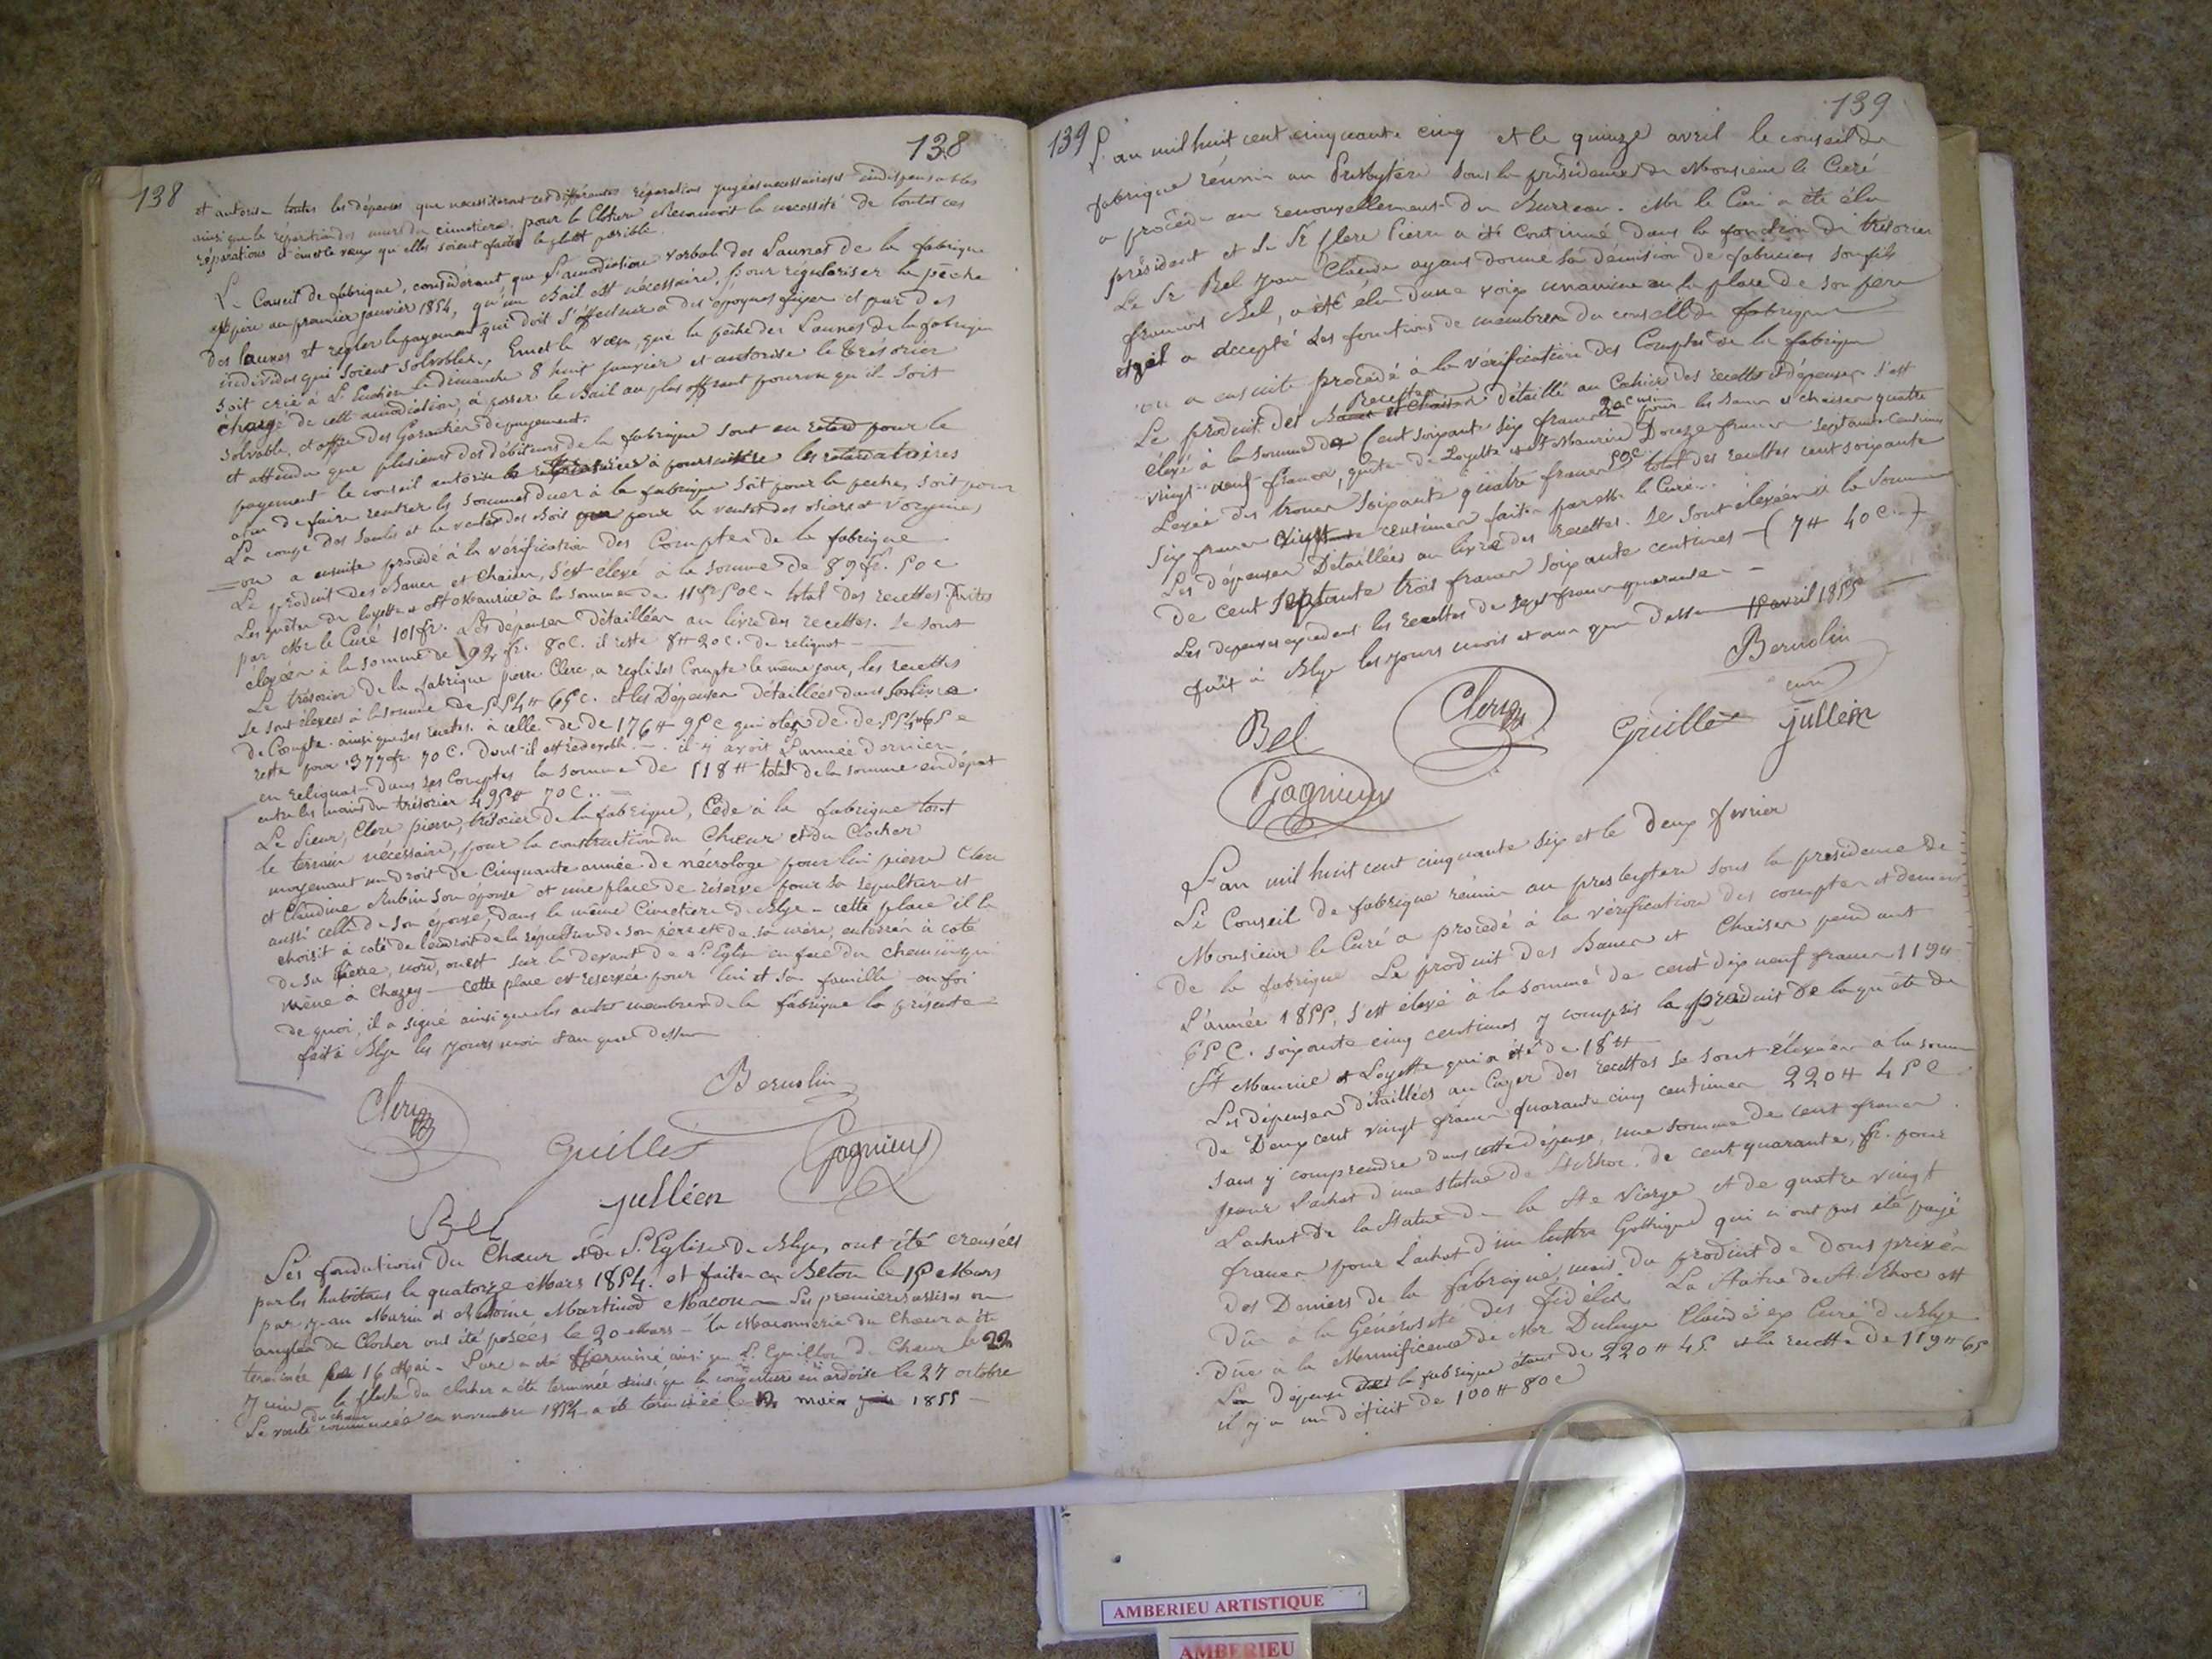 138
138
et autorise toutes les dépenses que necessiteront ces différentes réparations jugées necessaires et indispensables
ainsi que la réparation des murs du cimetiere, pour la Cloture Reconnoit la necessité de toutes ces
réparations et émet le vœux qu'elles soient faites le plutôt possible.
Le Conseil de fabrique, considérant, que l'amodiation verbale des Launes de la fabrique
expire au premier janvier 1854, qu'un Bail est nécessaire, pour régulariser la pêche
des launes et régler le payement qui doit s'effectuer a des époques fixes et par des
individus qui soient solvables, Emet le vœu, que la pêche des Launes de la fabrique
soit criée à le Dimanche 8 huit janvier et autorise le trésorier
chargé de cette amodiation, à passer le Bail au plus offrant pourvu qu'il soit
solvable, et offre des Garanties de payement.
et attendu que plusieurs des débiteurs de la fabrique sont en retard pour le
payement le conseil autorise le trésorier à poursuivre les retardataires
afin de faire rentrer les sommes dues à la fabrique soit pour la peche, soit pour
La coupe des Saules et la vente des Bois pour la vente des osiers et Vorgines
on a ensuite procédé à la vérification des Comptes de la fabrique
Le produit des Bancs et Chaises, s'est elevé à la somme de 89 fr. 50 c
Les quêtes de loyette et St Maurice à la somme de 11 fr 50 c - total des recettes faites
par Mr le Curé 101 fr. Les dépenses détaillées au livre des recettes. se sont
élevées à la somme de 92 fr. 80 c. il reste 8 ₶ 20 c. de reliquat
Le trésorier de la fabrique pierre Clerc, a reglé ses Compte le même jour, les recettes
se sont élevées à la somme de 554 ₶ 65 c. et les Dépenses détaillées dans son livre
de Compte ainsi que ses recettes. à celle de de 176 ₶ 95 c qui ôtés de de 554 ₶ 65 c
reste pour 377 fr 70 c. dont il est redevable. — il y avoit l'année dernière
en reliquat dans ses Comptes la somme de 118 ₶ total de la somme en dépot
entre les mains du trésorier 495 ₶ 70 c..
Le Sieur, Clerc pierre, trésorier de la fabrique, Cède à la fabrique tout
le terrain nécessaire, pour la construction du Chœur et du Clocher
moyenant un droit de Cinquante année de nécrologe pour lui pierre Clerc
et Claudine Rubin son épouse et une place de réserve pour sa sépulture et
aussi celle de son épouse, dans le même Cimetiere de Blye - cette place il la
choisit à coté de l'endroit de la sépulture de son pere et de sa mère, enterrés à coté
de sa nord, ouest sur le devant de l'Eglise en face du chemin qui
mène à Chazey — cette place est reservée pour lui et sa famille en foi
de quoi, il a signé ainsi que les autres membres de la fabrique la présente
fait à Blye les jours mois et an que dessus
Clerc
Bernolin
Guillet
Gagnieux
Jullien
Bel
Les fondations du Chœur et de l'Eglise de Blye, ont été creusées
par les habitans le quatorze Mars 1854. et faites en Beton le 15 Mars
par Jean Marin et Antoine Martinod Macon - Les premieres assises en
angles du Clocher ont été posées le 20 Mars - la Maconnerie du Chœur a été
terminée le 16 Mai - L'arc a été terminé ainsi que l'Eguillon du Chœur le 22
Juin - la fleche du clocher a été terminée ainsi que la couverture en ardoise le 27 octobre
La voute du chœur commencée en novembre 1854 a été terminée le 12 mars 1855 —
139
139
L'an mil huit cent cinquante cinq et le quinze avril le conseil de
fabrique réuni au Presbytère sous la présidence de Monsieur le Curé
a procédé au renouvellement du Bureau. Mr le Curé a été élu
président et le Sr Clerc Pierre a été Continué dans la fonction de trésorier
Le Sr Bel Jean Claude ayant donné sa démission de fabricien son fils
francois Bel, a été élu d'une voix unanime en la place de son pere
et il a accepté les fonctions de membre du conseil de fabrique
on a ensuite procédé à la vérification des Comptes de la fabrique
Le produit des Recettes détaillé au Cahier des recettes et dépenses s'est
élevé à la somme de Cent soixante six francs 20 c pour les bancs et chaises quatre
vingt-neuf francs, quêtes de Loyette et St Maurice Douze francs septante Centimes
Levée des troncs soixante quatre francs 50 c. total des recettes cent soixante
six francs vingt centimes faites par Mr le Curé.
Les dépenses Détaillées au livre des recettes. se sont élevées à la somme
de cent septante trois francs soixante centimes — (7 ₶ 40 c.)
Les dépenses excedent les Recettes de sept francs quarante —
fait à Blye les jours mois et an que dessus 15 avril 1855 —
Bernolin
curé
Bel
Clerc
Guillet
Jullien
Gagnieux
L'an mil huit cent cinquante six et le deux fevrier
Le Conseil de fabrique réuni au presbytere sous la présidence de
Monsieur le Curé a procédé à la vérification des comptes et deniers
de la fabrique Le produit des Bancs et Chaises pendant
l'année 1855, s'est élevé à la somme de cent dix neuf francs 119 ₶
65 c. soixante cinq centimes y compris le produit de la quête de
St Maurice et Loyette qui a été de 18 ₶
Les dépenses détaillées au Cayer des recettes se sont élevées a la somme
de Deux cent vingt francs quarante cinq centimes 220 ₶ 45 c
sans y comprendre dans cette dépense, une somme de cent francs
pour l'achat d'une statue de St Roc. de cent quarante, fr. pour
L'achat de la statue de la Ste Vierge et de quatre vingt
francs pour l'achat d'un lustre Gothique qui n'ont pas été payé
des Deniers de la fabrique, mais du produit de Dons privés
dûe à la Générosité des fidèles. La Statue de St Roc est
dûe à la Munificence de Mr Claude ex Curé de Blye
La dépense de la fabrique étant de 220 ₶ 45 et la recette de 119 ₶ 65
il y a un déficit de 100 ₶ 80 c
AMBERIEU ARTISTIQUE
AMBERIEU